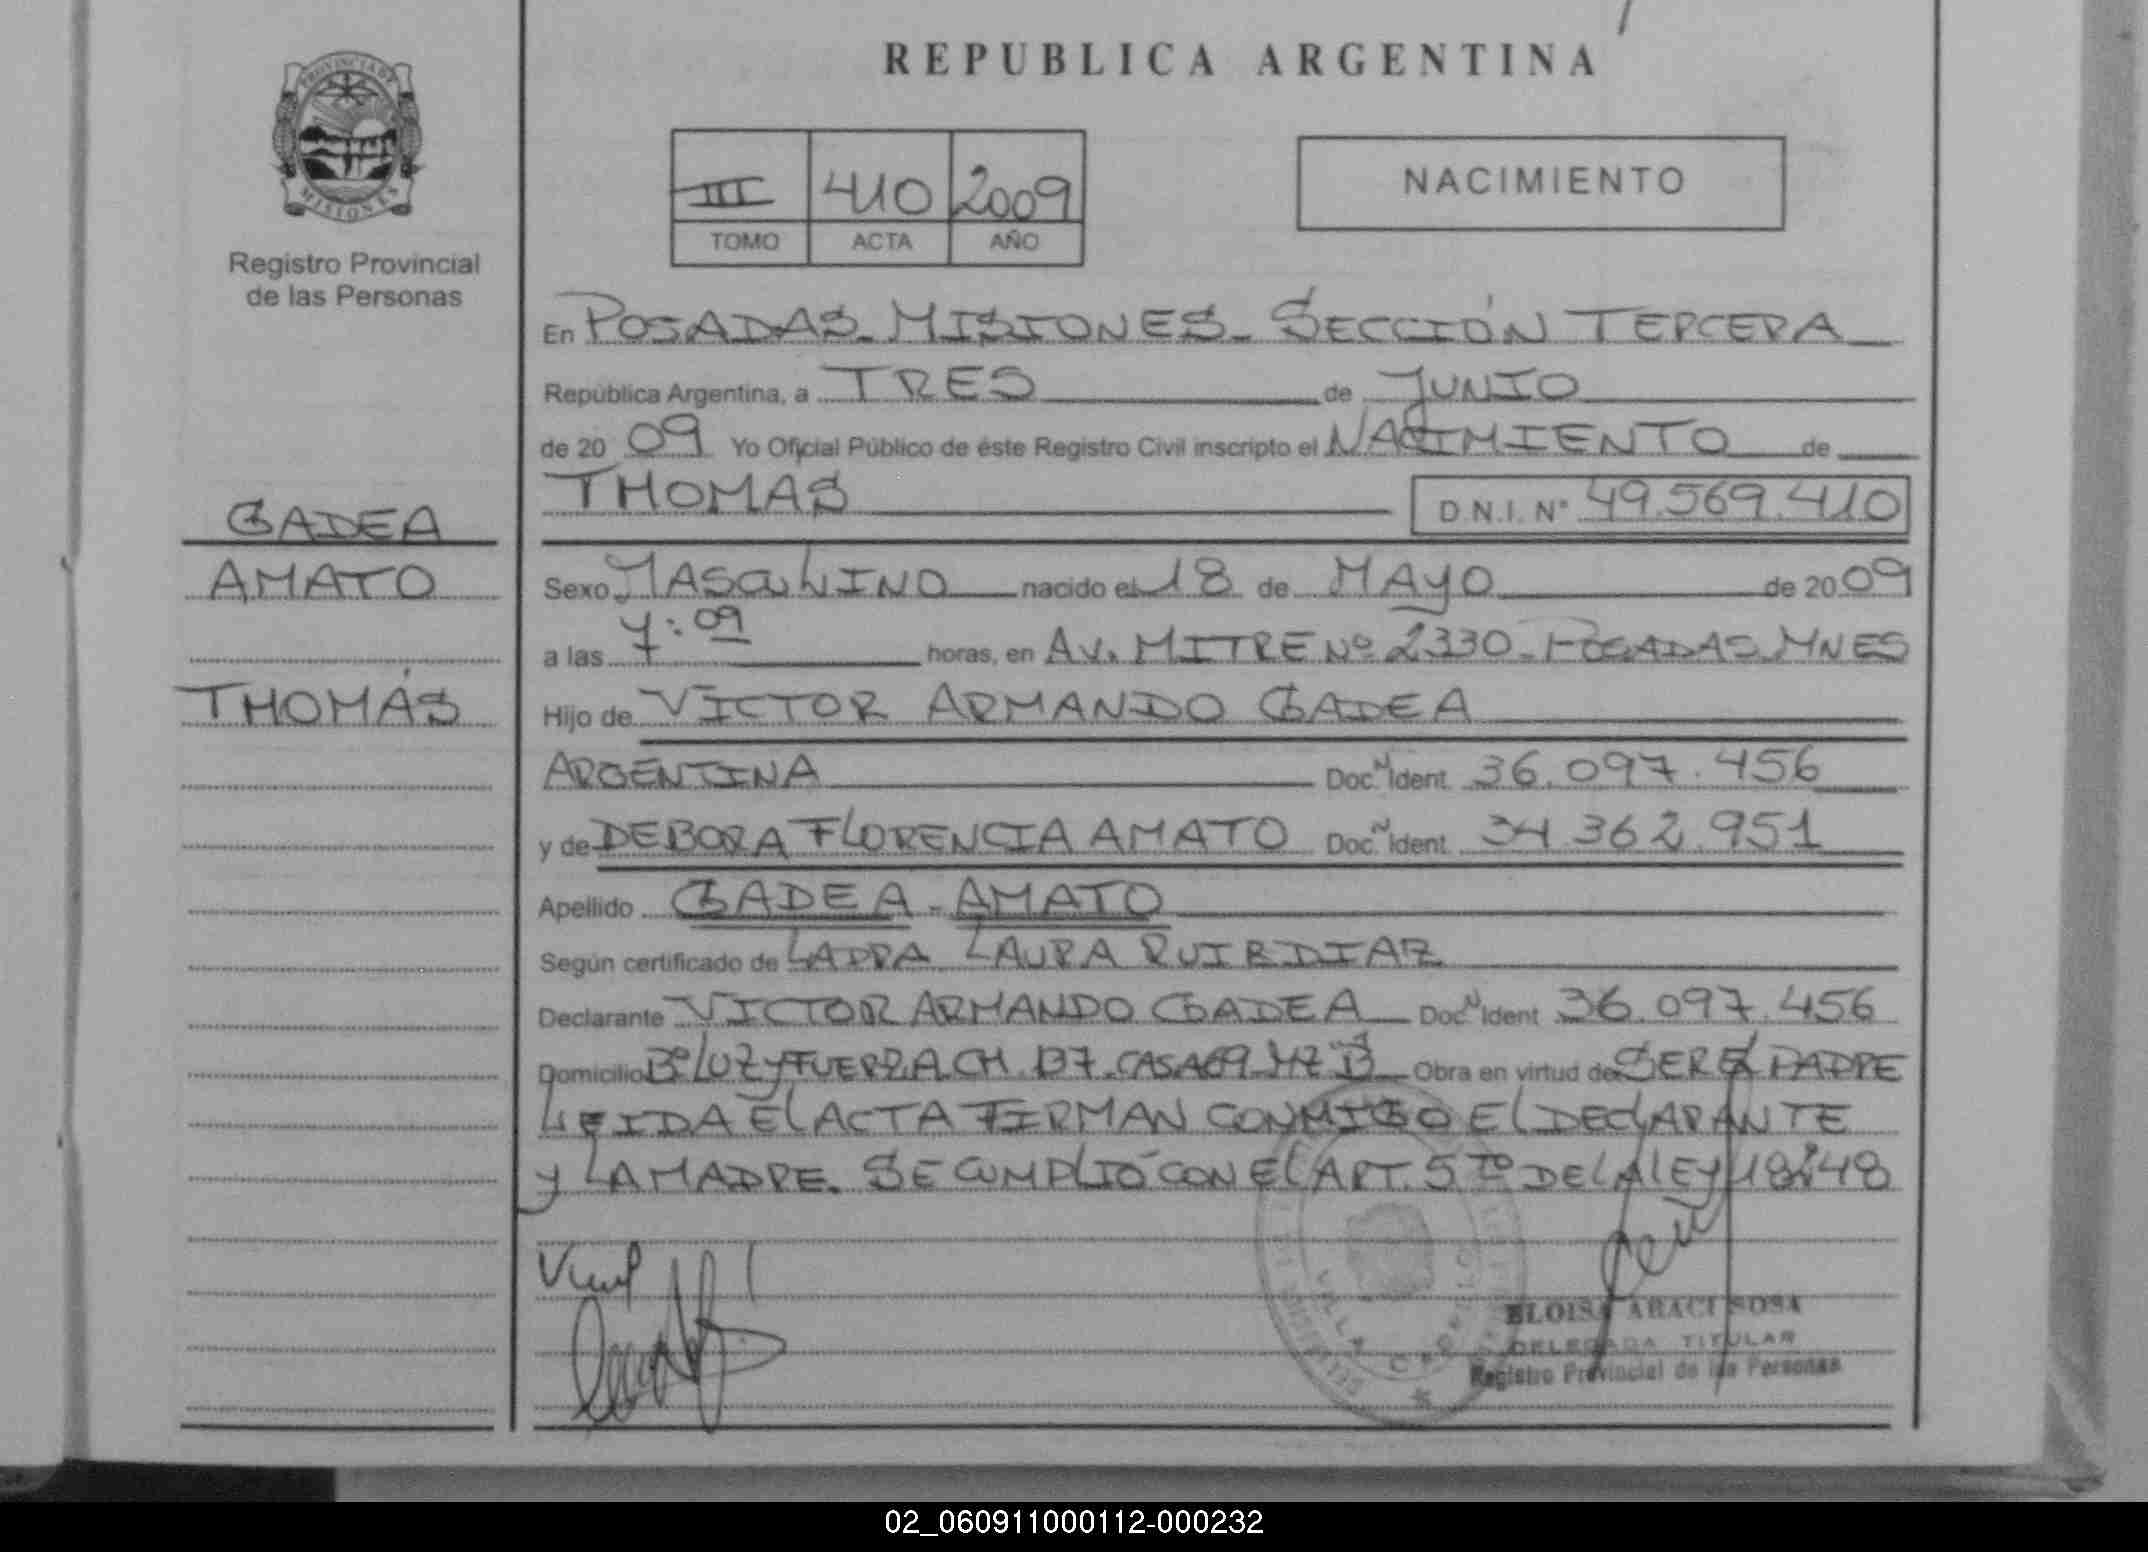 REPUBLICA ARGENTINA
PROVINCIA DE
MISIONES
Registro Provincial
de las Personas
III 410 2009
TOMO ACTA AÑO
NACIMIENTO
En POSADAS_MISIONES_SECCIÓN TERCERA
República Argentina, a TRES de JUNIO
de 20 09 Yo Oficial Público de éste Registro Civil inscripto el NACIMIENTO de
THOMAS D.N.I. N° 49.569.410
GADEA
AMATO
THOMÁS
Sexo MASCULINO nacido el 18 de MAYO de 20 09
a las 7:09 horas, en AV. MITRE Nº 2330_POSADAS_MNES
Hijo de VICTOR ARMANDO GADEA
ARGENTINA Doc. N Ident. 36.097.456
y de DEBORA FLORENCIA AMATO Doc. N Ident. 34.362.951
Apellido GADEA - AMATO
Según certificado de LAURA
Declarante VICTOR ARMANDO GADEA Doc. N Ident 36.097.456
Domicilio Bº LUZ y FUERZA CH. 137. CASA 69 MZ "B" Obra en virtud de SER EL PADRE
LEIDA El ACTA FIRMAN CONMIGO El DEClARANTE
y LA MADRE. SE CUMPLIÓ CON El ART. 5TO DE LA lEy 18248
VILLA CABELLO
ELOISA ARACI SOSA
DELEGADA TITULAR
Registro Provincial de las Personas
02_060911000112-000232